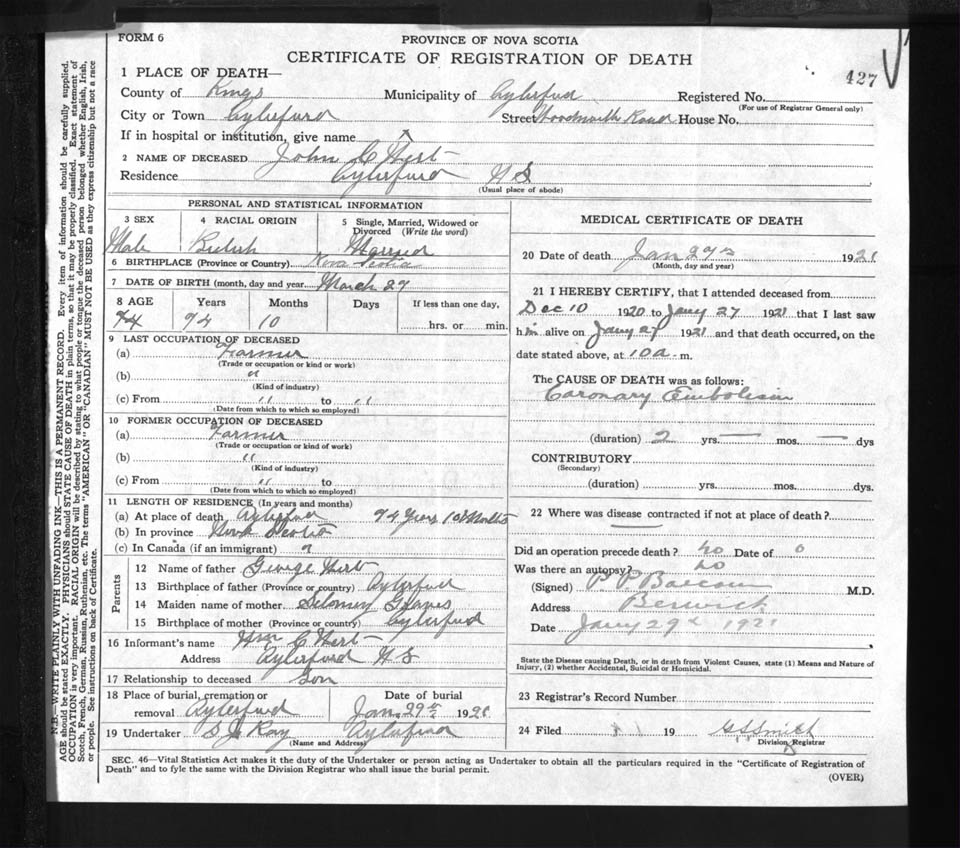 FORM 6
PROVINCE OF NOVA SCOTIA
CERTIFICATE OF REGISTRATION OF DEATH
427
1 PLACE OF DEATH—
County of Kings Municipality of Aylesford Registered No.
(For use of Registrar General only)
City or Town Aylesford Street Road House No.
If in hospital or institution, give name
2 NAME OF DECEASED John C West
Residence Aylesford N S
(Usual place of abode)
PERSONAL AND STATISTICAL INFORMATION
3 SEX 4 RACIAL ORIGIN 5 Single, Married, Widowed or Divorced (Write the word)
Male British Married
6 BIRTHPLACE (Province or Country) Nova Scotia
7 DATE OF BIRTH (month, day and year) March 27
8 AGE Years Months Days If less than one day,
74 10 hrs. or min.
9 LAST OCCUPATION OF DECEASED
(a) Farmer
(Trade or occupation or kind or work)
(b) "
(Kind of industry)
(c) From " to "
(Date from which to which so employed)
10 FORMER OCCUPATION OF DECEASED
(a) Farmer
(Trade or occupation or kind of work)
(b) "
(Kind of industry)
(c) From " to
(Date from which to which so employed)
11 LENGTH OF RESIDENCE (In years and months)
(a) At place of death Aylesford 74 Years 10 Months
(b) In province Nova Scotia
(c) In Canada (if an immigrant)
Parents
12 Name of father George West
13 Birthplace of father (Province or country) Aylesford
14 Maiden name of mother Graves
15 Birthplace of mother (Province or country) Aylesford
16 Informant's name Wm C West
Address Aylesford N S
17 Relationship to deceased Son
18 Place of burial, cremation or removal Aylesford Date of burial Jan. 29th 1921
19 Undertaker S J Ray Aylesford
(Name and Address)
MEDICAL CERTIFICATE OF DEATH
20 Date of death Jan 27th 1921
(Month, day and year)
21 I HEREBY CERTIFY, that I attended deceased from
Dec 10 1920 to Jany 27 1921 that I last saw
him alive on Jany 27 1921 and that death occurred, on the
date stated above, at 10 a m.
The CAUSE OF DEATH was as follows:
Coronary Embolism
(duration) 2 yrs. — mos. — dys
CONTRIBUTORY
(Secondary)
(duration) yrs. mos. dys.
22 Where was disease contracted if not at place of death?
Did an operation precede death? No Date of 0
Was there an autopsy? No
(Signed) P. P. Balcom M.D.
Address Berwick
Date Jany 29th 1921
State the Disease causing Death, or in death from Violent Causes, state (1) Means and Nature of
Injury, (2) whether Accidental, Suicidal or Homicidal.
23 Registrar's Record Number
24 Filed 19 Smith
Division Registrar
SEC. 46—Vital Statistics Act makes it the duty of the Undertaker or person acting as Undertaker to obtain all the particulars required in the "Certificate of Registration of
Death" and to fyle the same with the Division Registrar who shall issue the burial permit.
(OVER)
N.B.—WRITE PLAINLY WITH UNFADING INK—THIS IS A PERMANENT RECORD. Every item of information should be carefully supplied.
AGE should be stated EXACTLY. PHYSICIANS should STATE CAUSE OF DEATH in plain terms, so that it may be properly classified. Exact statement of
OCCUPATION is very important. RACIAL ORIGIN will be described by stating to what people or tongue the deceased person belonged whether English, Irish,
Scotch, French, German, Russian, Ruthenian, etc. The terms "AMERICAN" OR "CANADIAN" MUST NOT BE USED as they express citizenship but not a race
or people. See instructions on back of Certificate.